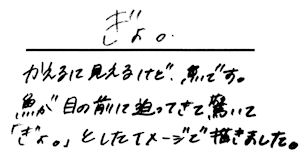 ぎょ。
かえるに見えるけど、魚です。
魚が目の前に迫ってきて驚いて
「ぎょ。」としたイメージで描きました。